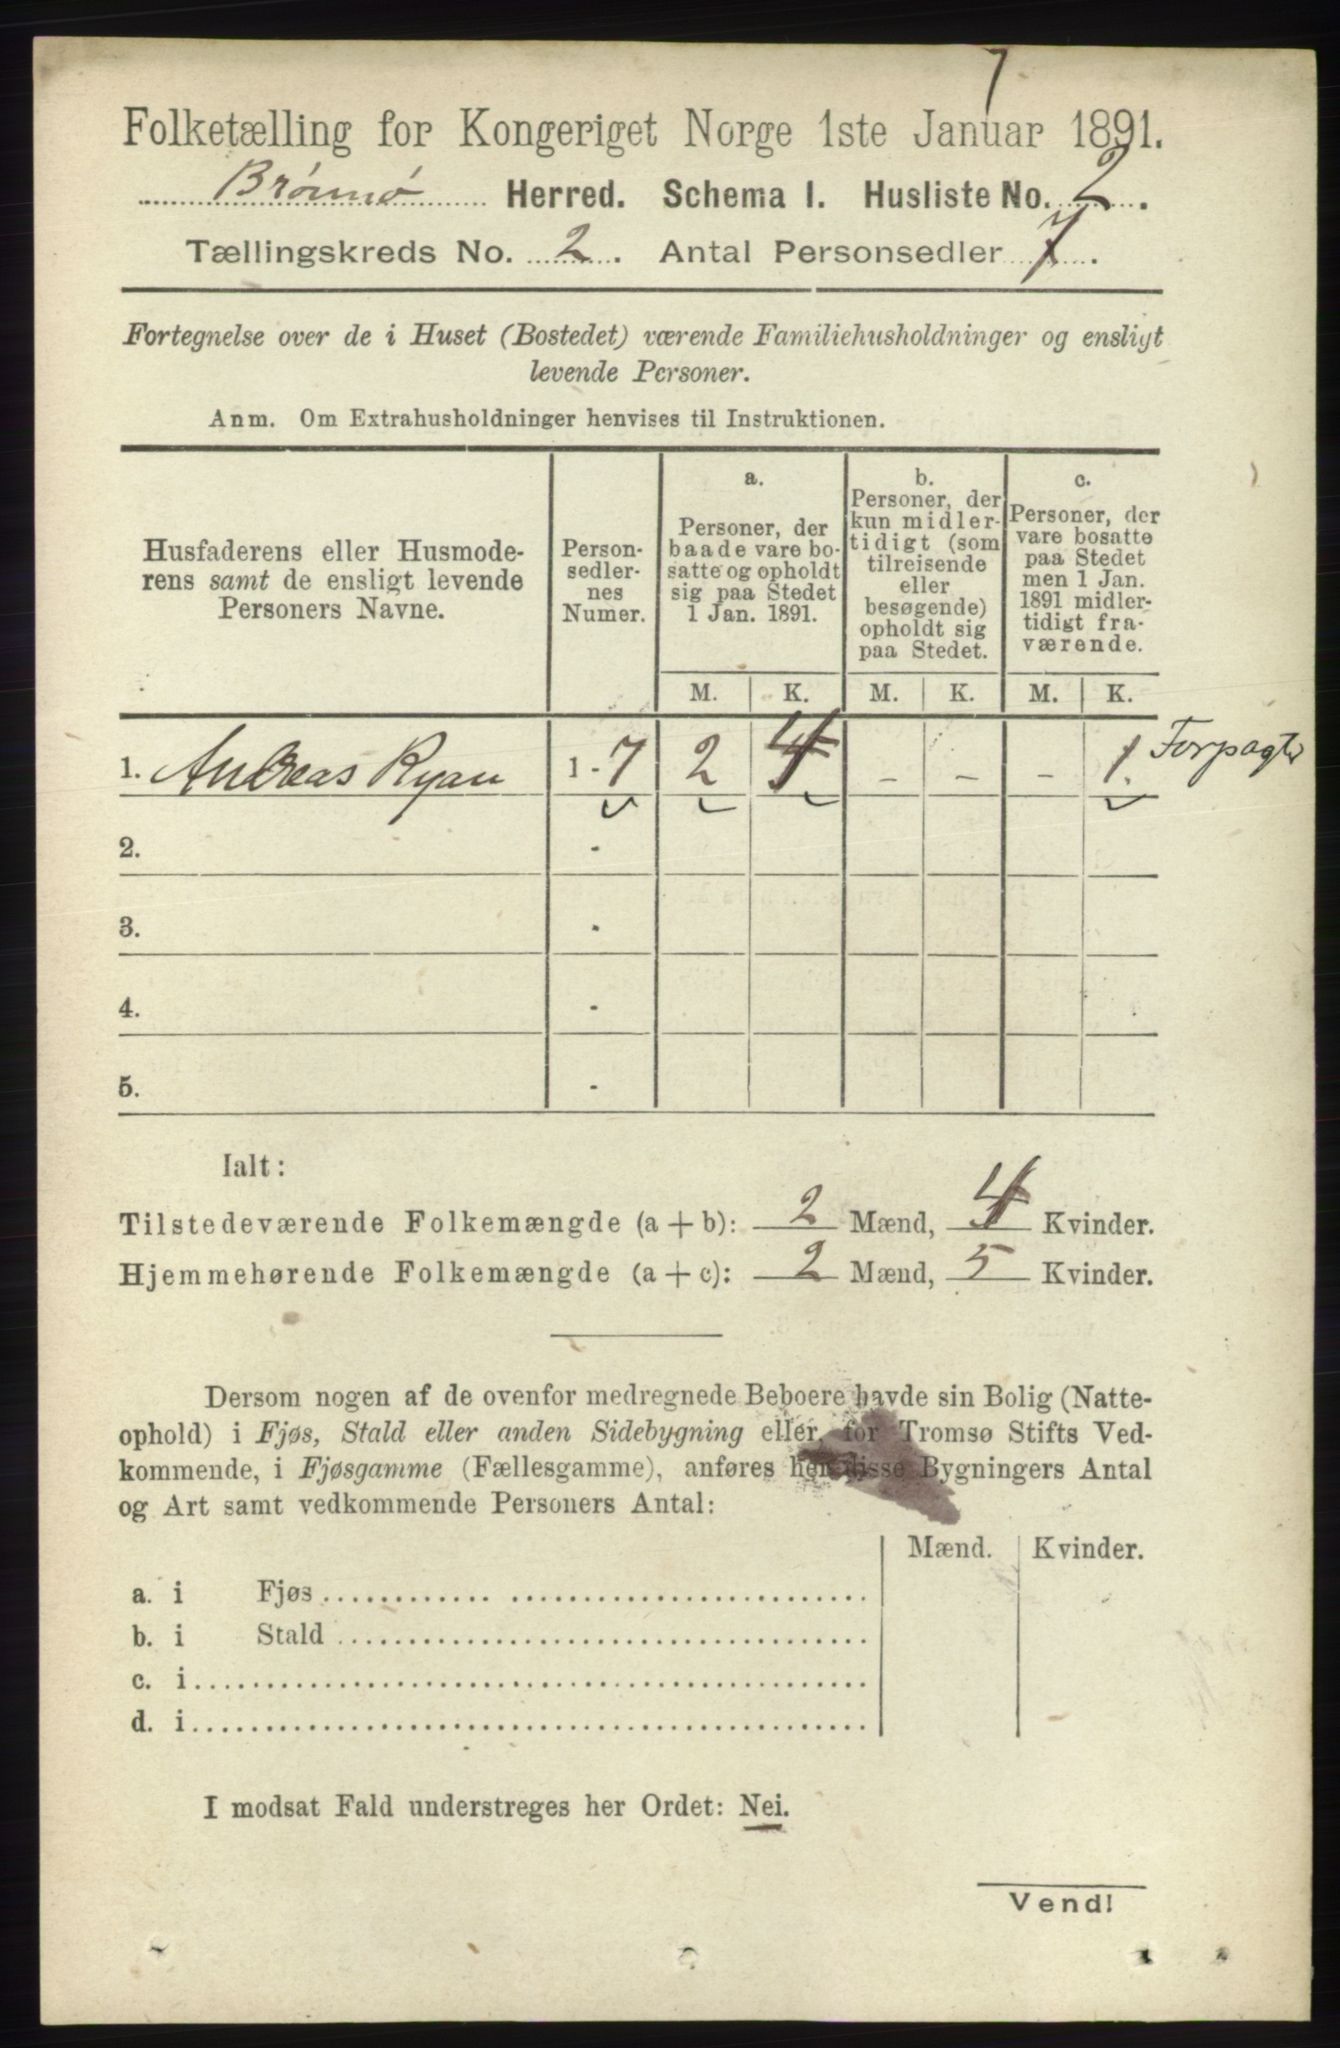 7
Folketælling for Kongeriget Norge 1ste Januar 1891.
Brønnø Herred. Schema I. Husliste No. 2.
Tællingskreds No. 2. Antal Personsedler 7.
Fortegnelse over de i Huset (Bostedet) værende Familiehusholdninger og ensligt
levende Personer.
Anm. Om Extrahusholdninger henvises til Instruktionen.
Husfaderens eller Husmode-
rens samt de ensligt levende
Personers Navne.
Person-
sedler-
nes
Numer.
a.
Personer, der
baade vare bo-
satte og opholdt
sig paa Stedet
1 Jan. 1891.
b.
Personer, der
kun midler-
tidigt (som
tilreisende
eller
besøgende)
opholdt sig
paa Stedet.
c.
Personer, der
vare bosatte
paa Stedet
men 1 Jan.
1891 midler-
tidigt fra-
værende.
M. K. M. K. M. K.
1. Andreas Ryan 1 - 7 2 4 - - - 1. Forpagter
2. -
3. -
4. -
5. -
Ialt:
Tilstedeværende Folkemængde (a + b): 2 Mænd, 4 Kvinder.
Hjemmehørende Folkemængde (a + c): 2 Mænd, 5 Kvinder.
Dersom nogen af de ovenfor medregnede Beboere havde sin Bolig (Natte-
ophold) i Fjøs, Stald eller anden Sidebygning eller, for Tromsø Stifts Ved-
kommende, i Fjøsgamme (Fællesgamme), anføres her disse Bygningers Antal
og Art samt vedkommende Personers Antal:
Mænd. Kvinder.
a. i Fjøs
b. i Stald
c. i
d. i
I modsat Fald understreges her Ordet: Nei.
Vend!